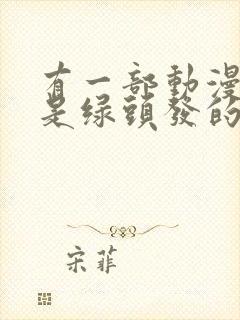 有一部動漫
是绿頭發的
宋菲